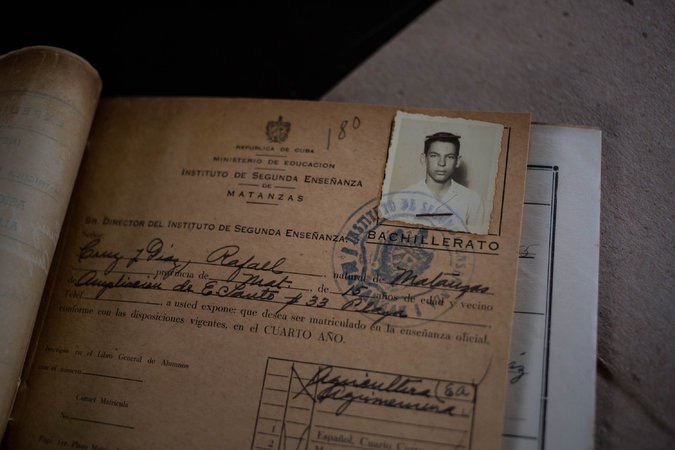 180
REPUBLICA DE CUBA
MINISTERIO DE EDUCACION
INSTITUTO DE SEGUNDA ENSEÑANZA
DE
MATANZAS
SR. DIRECTOR DEL INSTITUTO DE SEGUNDA ENSEÑANZA:
BACHILLERATO
Señor:
Cruz y Diaz, Rafael natural de Matanzas
provincia de Mat. de 15 años de edad y vecino
de Ampliacion de E. Santo # 33 Playa
Teléf. a usted expone: que desea ser matriculado en la enseñanza oficial,
conforme con las disposiciones vigentes, en el CUARTO AÑO.
Inscripto en el Libro General de Alumnos
con el número
Carnet Matrícula
No.
Agricultura
Agrimensura
1
Español, Cuarto
2
INSTITUTO DE SE